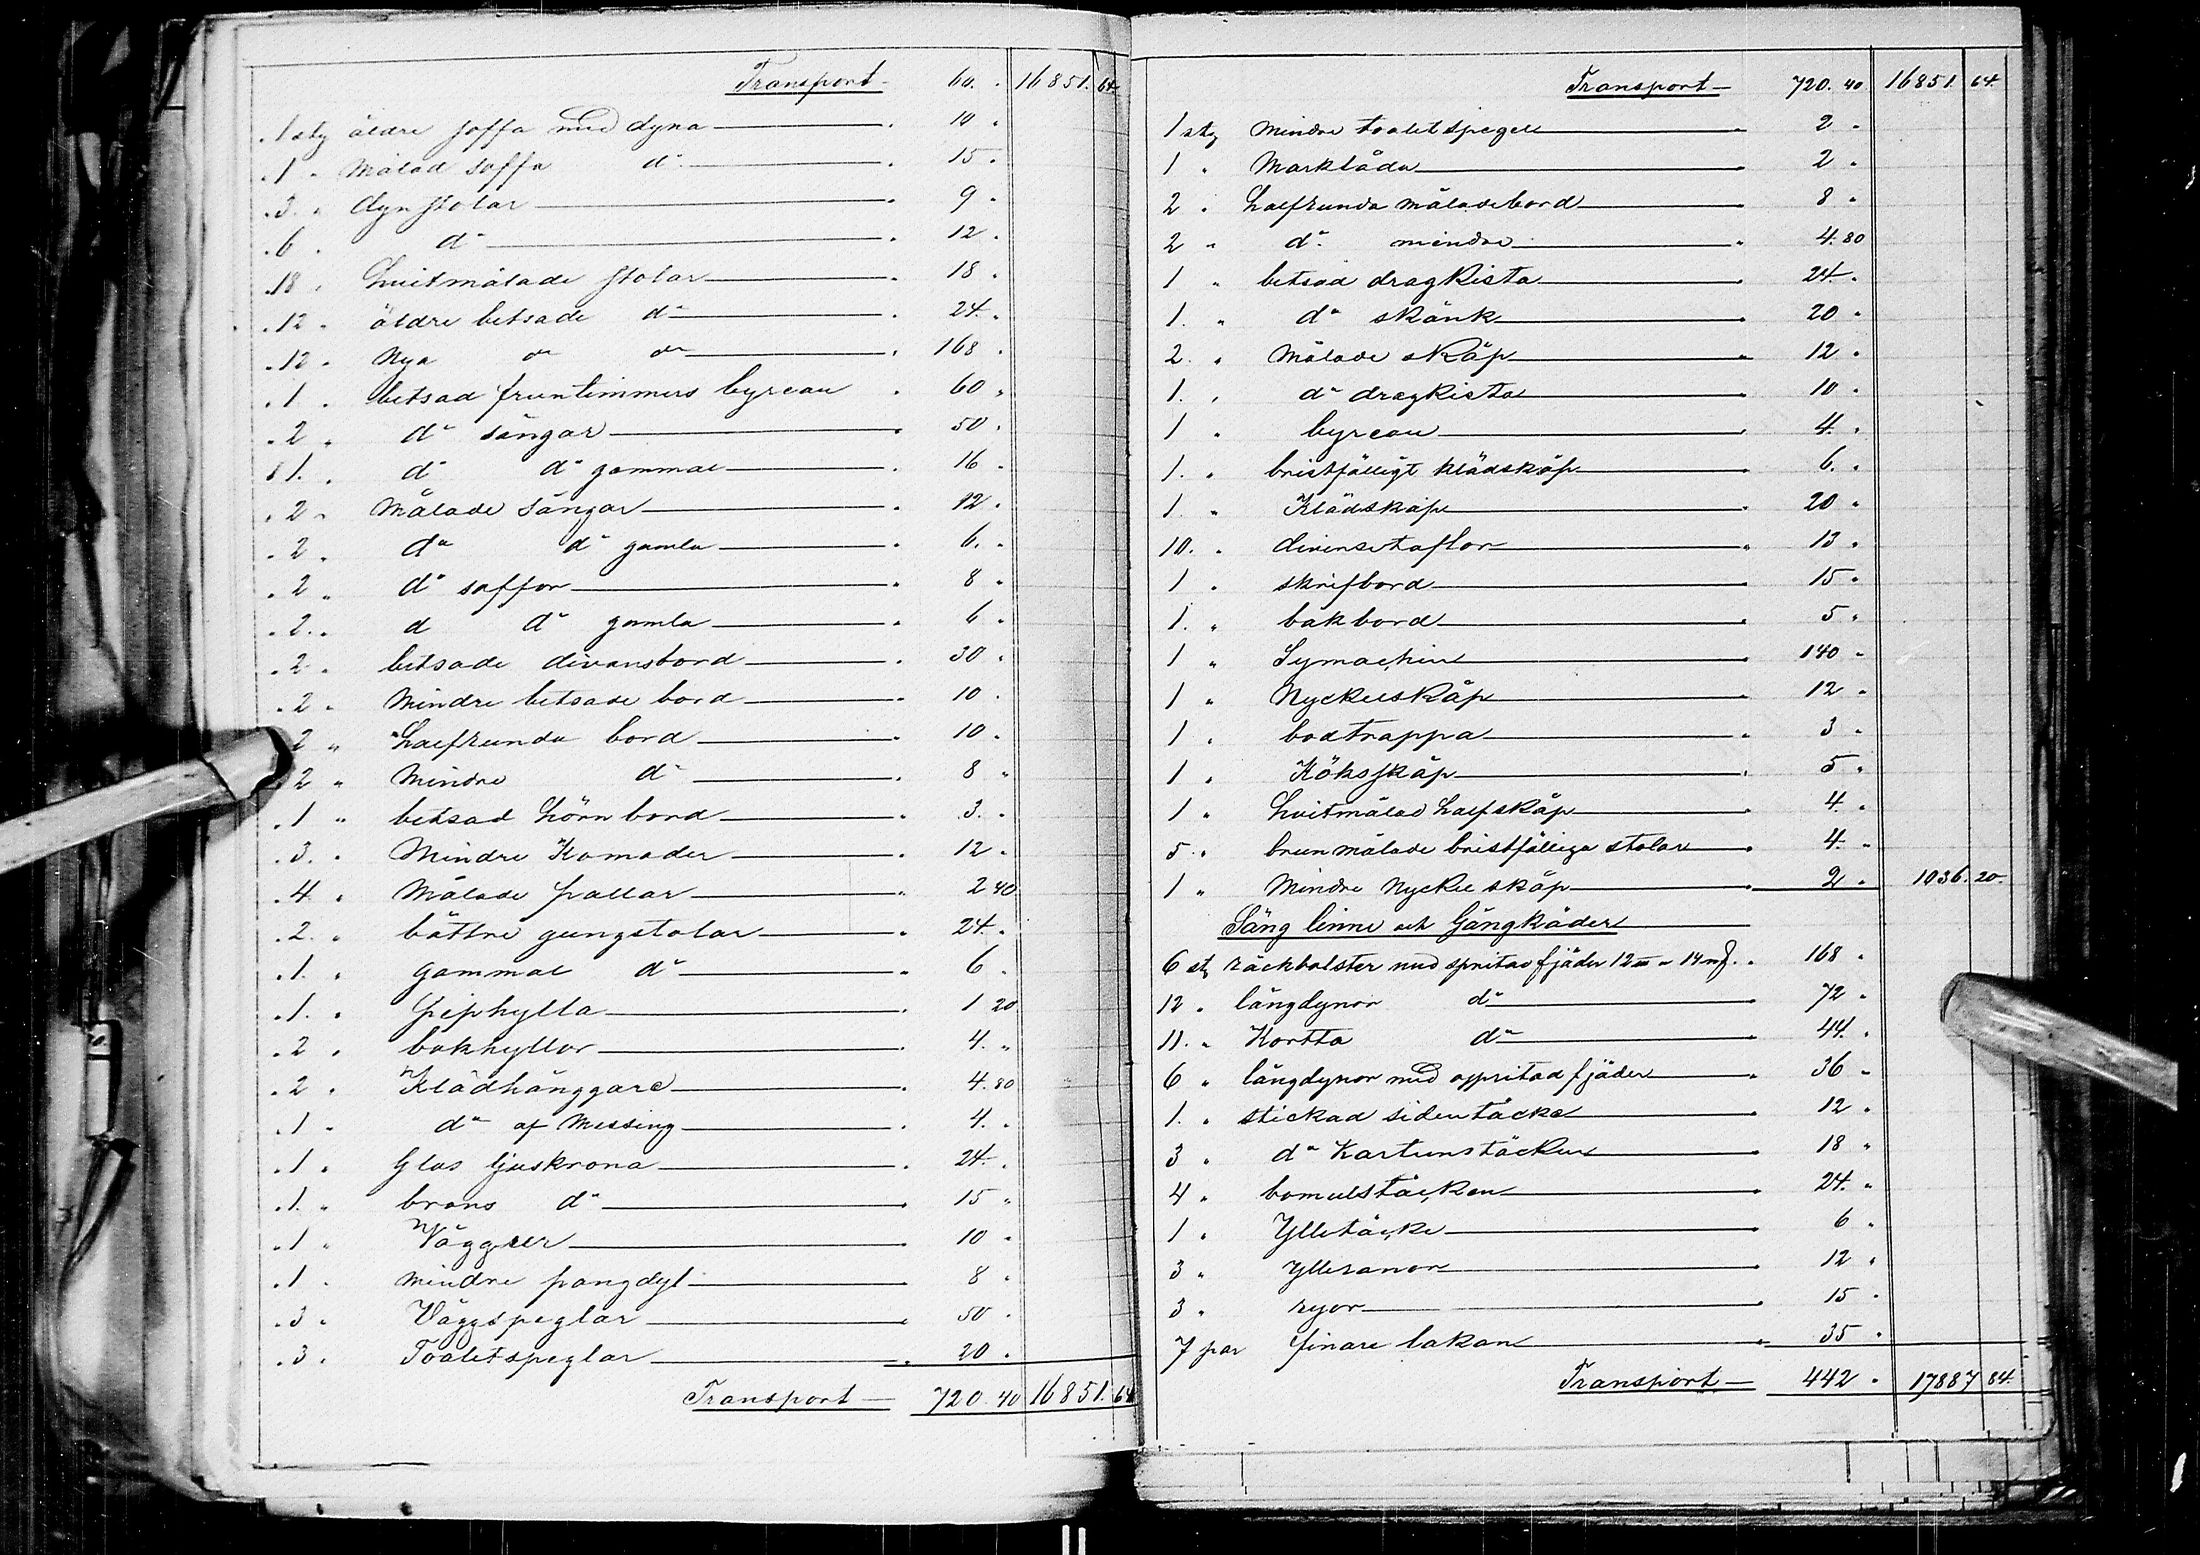 Transport 60. " 16851. 64.
1 sty äldre soffa med dyna 10 "
1 " Målad soffa d:o 15 "
3 " dynstolar 9 "
6 " d:o 12 "
18 " hvitmålade stolar 18 "
12 " äldre betsade d:o 24 "
12 " Nya d:o d:o 168 "
1 " betsad fruntimmers byreau 60 "
2 " d:o sängar 50 "
1 " d:o d:o gammal 16 "
2 " Målade sängar 12 "
2 " d:o d:o gamla 6 "
2 " d:o soffor 8 "
2 " d d:o gamla 6 "
2 " betsade divansbord 30 "
2 " Mindre betsade bord 10 "
2 " halfrunda bord 10 "
2 " Mindre d:o 8 "
1 " betsad hörn bord 3 "
3 " Mindre Komoder 12 "
4 " Målade pallar 2 40
2 " bättre gungstolar 24 "
1 " gammal d:o 6 "
1 " Piphylla 1 20
2 " bokhyllor 4 "
2 " Klädhänggare 4.80
1 " d:o af Messing 4 "
1 " Glas ljuskrona 24 "
1 " brons d:o 15 "
1 " Väggur 10 "
1 " mindre pangdyl 8 "
3 " Väggspeglar 50 "
3 " Toaletspeglar 20 "
Transport 720.40 16851. 64
Transport 720.40 16851. 64.
1 sty Mindre toaletspegel 2 "
1 " Marklåda 2 "
2 " halfrunda målade bord 8 "
2 " d:o mindre 4.80
1 " betsad dragkista 24 "
1 " d:o skänk 20 "
2 " Målade skåp 12 "
1 " d:o dragkista 10 "
1 " byreau 4 "
1 " bristfälligt klädskåp 6 "
1 " Klädskåp 20 "
10 " diverse taflor 13 "
1 " skrifbord 15 "
1 " bakbord 5 "
1 " Symachin 140 "
1 " Nyckelskåp 12 "
1 " bodtrappa 3 "
1 " Köksskåp 5 "
1 " hvitmålad halfskåp 4 "
5 " brun målade bristfälliga stolar 4 "
1 " Mindre Nyckel skåp 2 " 1036. 20.
Säng linne och Gångkäder
6 st räckbolster med spritad fjäder 168 "
12 " långdynor d:o 72 "
11 " Kortta d:o 44 "
6 " långdynor med ospritad fjäder 36 "
1 " stickad sidentäcke 12 "
3 " d:o Kartunstäcken 18 "
4 " bomulstäcken 24 "
1 " Ylletäcke 6 "
3 " Yllesanor 12 "
3 " ryor 15 "
7 par finare lakan 35 "
Transport 442 " 17887 84.